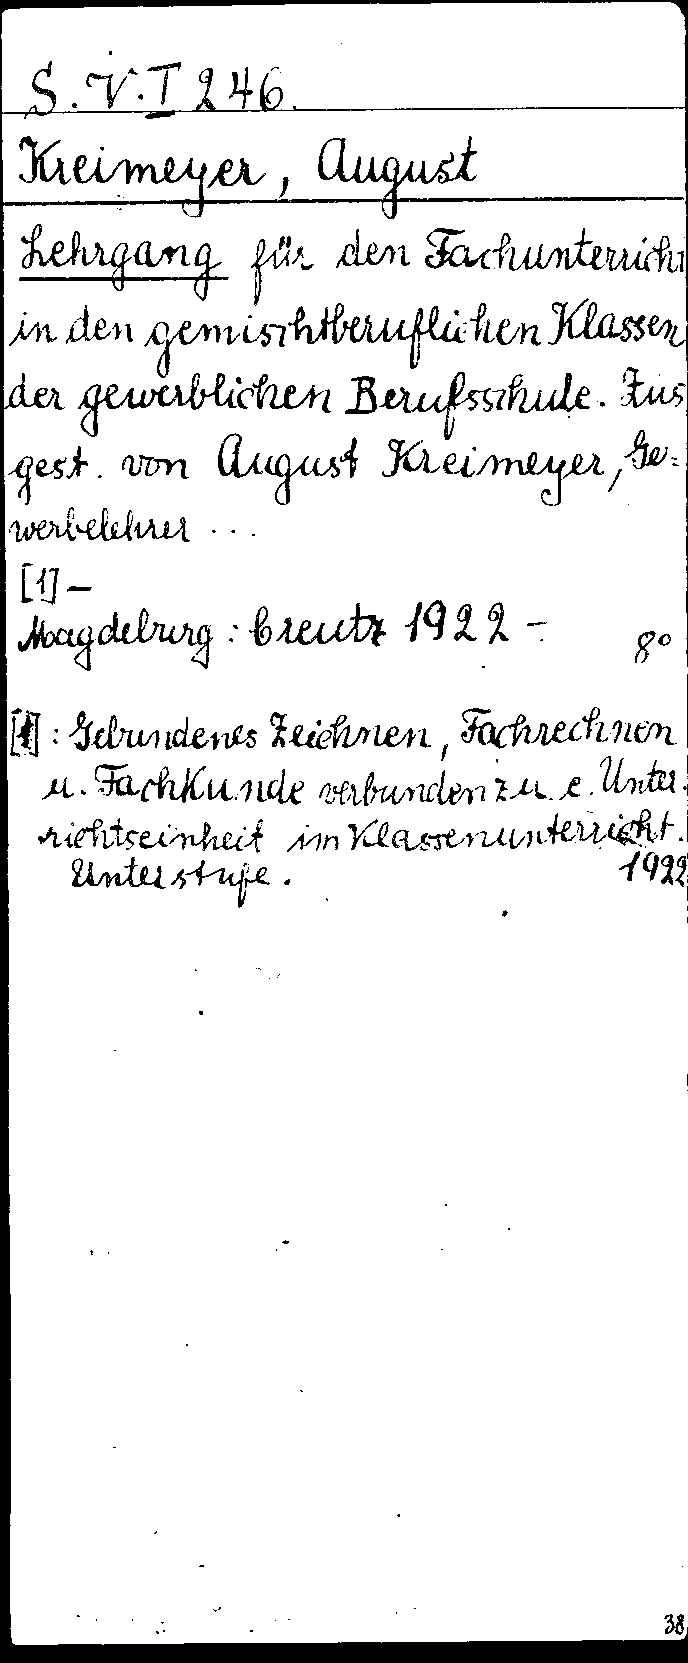 S.V.I 246.
Kreimeyer, August
Lehrgang für den Fachunterricht
in den gemischtberuflichen Klassen
der gewerblichen Berufsschule. Zus
gest. von August Kreimeyer, Ge=
werbelehrer ...
[1] –
Magdeburg : Creutz 1922 – 8°
[1] : Gebundenes Zeichnen, Fachrechnen
u. Fachkunde verbunden zu e. Unter.
richtseinheit im Klassenunterricht.
Unterstufe. 1922
38